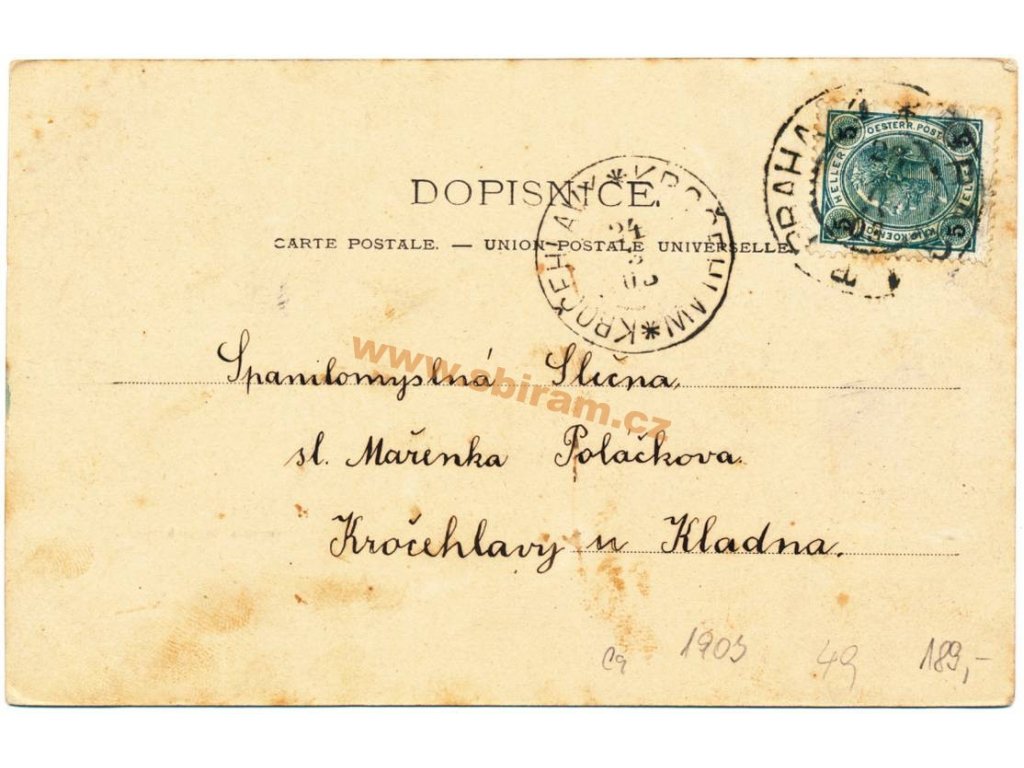 DOPISNICE.
CARTE POSTALE. — UNION POSTALE UNIVERSELLE.
PRAHA
5 OESTERR. POST 5
HELLER
5 5
KROČEHLAWY * KROČEHLAWY *
24
03
www.sbiram.cz
Spanilomyslná Slečna,
sl. Mařenka Poláčkova.
Kročehlavy u Kladna.
1903 49 189,-